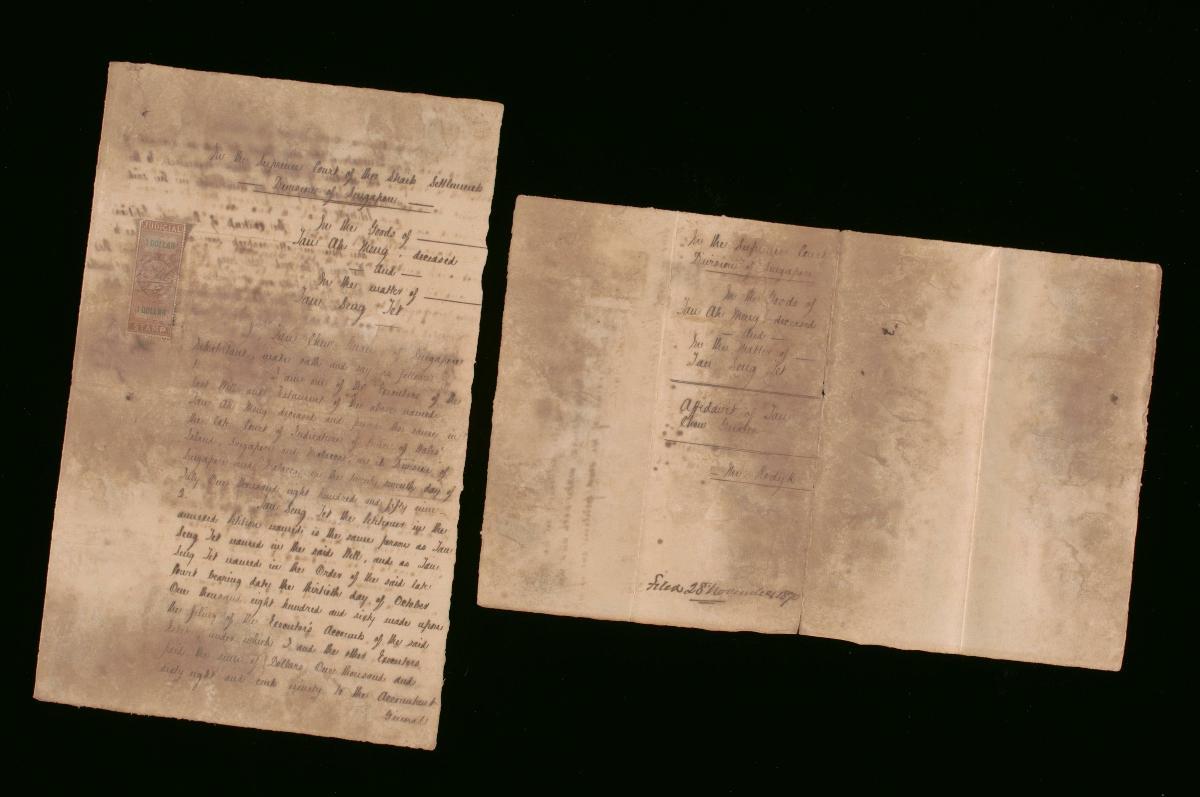 In the Supreme Court of the Straits Settlements
Division of Singapore
In the Goods of
Tan Ah Mong, deceased
and
In the matter of
Tan Seng Jet
JUDICIAL
1 DOLLAR
1 DOLLAR
STAMP
I Tan Chow of Singapore
Inhabitant, make oath and say as follows
1. I am one of the Executors of the
last Will and Testament of the above named
Tan Ah Mong deceased and proved the same in
the late Court of Judicature of Prince of Wales'
Island, Singapore and Malacca, in it Division of
Singapore and Malacca on the twenty seventh day of
July One thousand eight hundred and fifty nine
2. Tan Seng Jet the Petitioner in the
annexed Petition named is the same person as Tan
Seng Jet named in the said Will, and as Tan
Seng Jet named in the Order of the said late
Court bearing date the thirtieth day of October
One thousand eight hundred and sixty made upon
the filing of the Executor's Account of the said
under which I and the other Executors
paid the sum of Dollars One thousand and
sixty eight and cents ninety to the Accountant
General
In the Supreme Court
Division of Singapore
In the Goods of
Tan Ah Mong, deceased
and
In the Matter of
Tan Seng Jet
Affidavit of Tan
Chow
Mr. Rodyk
Filed 28 November